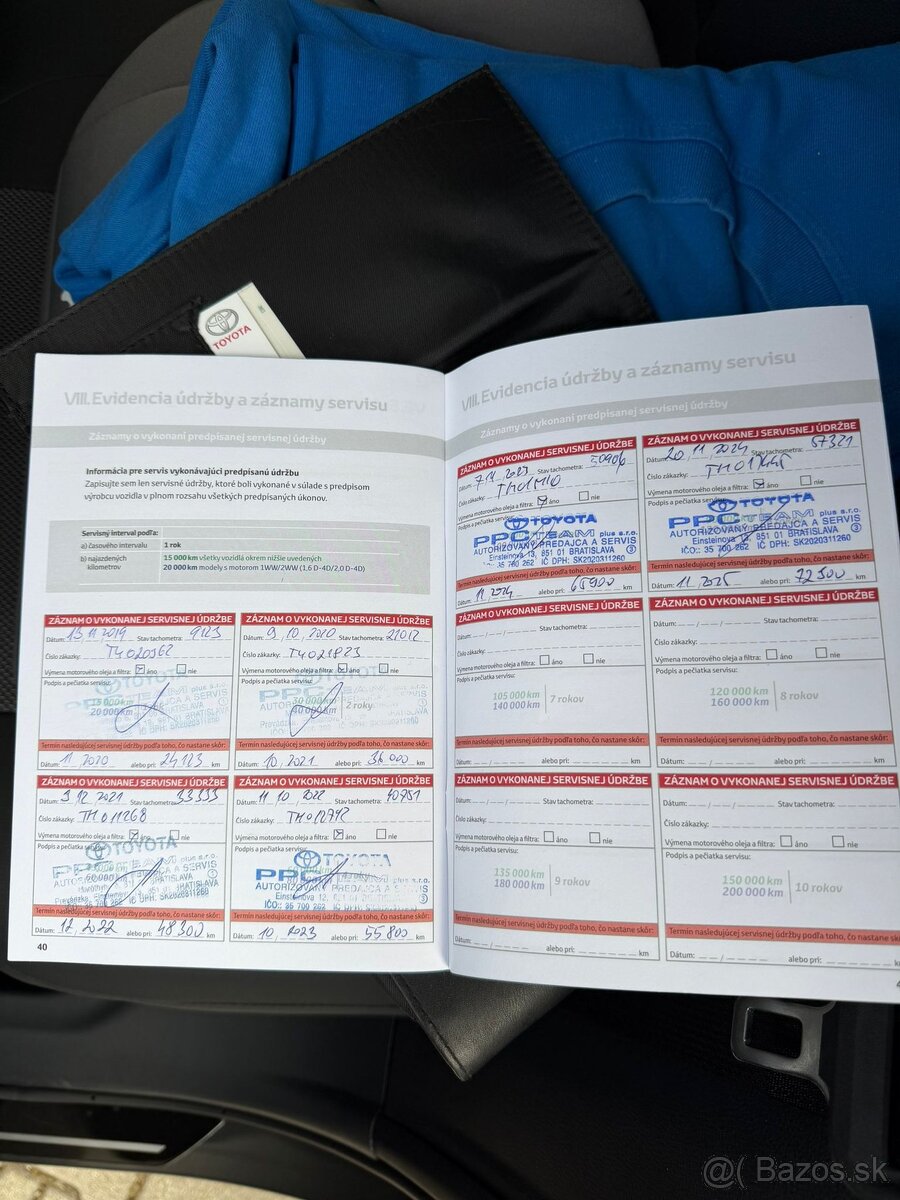 TOYOTA
VIII. Evidencia údržby a záznamy servisu
Záznamy o vykonaní predpísanej servisnej údržby
Informácia pre servis vykonávajúci predpísanú údržbu
Zapisujte sem len servisné údržby, ktoré boli vykonané v súlade s predpisom
výrobcu vozidla v plnom rozsahu všetkých predpísaných úkonov.
Servisný interval podľa:
a) časového intervalu 1 rok
b) najazdených kilometrov 15 000 km všetky vozidlá okrem nižšie uvedených
20 000 km modely s motorom 1WW/2WW (1,6 D-4D/2,0 D-4D)
ZÁZNAM O VYKONANEJ SERVISNEJ ÚDRŽBE
Dátum: 13 11 2019 Stav tachometra: 9123
Číslo zákazky: T4020562
Výmena motorového oleja a filtra: áno nie
Podpis a pečiatka servisu:
15 000 km
20 000 km
Termín nasledujúcej servisnej údržby podľa toho, čo nastane skôr:
Dátum: 11 2020 alebo pri: 24123 km
ZÁZNAM O VYKONANEJ SERVISNEJ ÚDRŽBE
Dátum: 9 10 2020 Stav tachometra: 21012
Číslo zákazky: T4021823
Výmena motorového oleja a filtra: áno nie
Podpis a pečiatka servisu:
30 000 km
40 000 km 2 roky
Termín nasledujúcej servisnej údržby podľa toho, čo nastane skôr:
Dátum: 10 2021 alebo pri: 36000 km
ZÁZNAM O VYKONANEJ SERVISNEJ ÚDRŽBE
Dátum: 3 12 2021 Stav tachometra: 33333
Číslo zákazky: TM011268
Výmena motorového oleja a filtra: áno nie
Podpis a pečiatka servisu:
TOYOTA
Termín nasledujúcej servisnej údržby podľa toho, čo nastane skôr:
Dátum: 12 2022 alebo pri: 48300 km
ZÁZNAM O VYKONANEJ SERVISNEJ ÚDRŽBE
Dátum: 11 10 2022 Stav tachometra: 40781
Číslo zákazky:
Výmena motorového oleja a filtra: áno nie
Podpis a pečiatka servisu:
TOYOTA
AUTORIZOVANÝ PREDAJCA A SERVIS
IČO: 35 700 262 IČ DPH: SK2020311260
Termín nasledujúcej servisnej údržby podľa toho, čo nastane skôr:
Dátum: 10 2023 alebo pri: 55800 km
40
VIII. Evidencia údržby a záznamy servisu
Záznamy o vykonaní predpísanej servisnej údržby
ZÁZNAM O VYKONANEJ SERVISNEJ ÚDRŽBE
Dátum: 7 11 2023 Stav tachometra: 50906
Číslo zákazky:
Výmena motorového oleja a filtra: áno nie
Podpis a pečiatka servisu:
TOYOTA
PPC TEAM plus s.r.o.
AUTORIZOVANÝ PREDAJCA A SERVIS
Einsteinova 13, 851 01 BRATISLAVA
IČO: 35 700 262 IČ DPH: SK2020311260
Termín nasledujúcej servisnej údržby podľa toho, čo nastane skôr:
Dátum: 11 2024 alebo pri: 65900 km
ZÁZNAM O VYKONANEJ SERVISNEJ ÚDRŽBE
Dátum: 20 11 2024 Stav tachometra: 57321
Číslo zákazky:
Výmena motorového oleja a filtra: áno nie
Podpis a pečiatka servisu:
TOYOTA
PPC TEAM plus s.r.o.
AUTORIZOVANÝ PREDAJCA A SERVIS
Einsteinova 13, 851 01 BRATISLAVA
IČO: 35 700 262 IČ DPH: SK2020311260
Termín nasledujúcej servisnej údržby podľa toho, čo nastane skôr:
Dátum: 11 2025 alebo pri: 72300 km
ZÁZNAM O VYKONANEJ SERVISNEJ ÚDRŽBE
Dátum: Stav tachometra:
Číslo zákazky:
Výmena motorového oleja a filtra: áno nie
Podpis a pečiatka servisu:
105 000 km
140 000 km 7 rokov
Termín nasledujúcej servisnej údržby podľa toho, čo nastane skôr:
Dátum: alebo pri: km
ZÁZNAM O VYKONANEJ SERVISNEJ ÚDRŽBE
Dátum: Stav tachometra:
Číslo zákazky:
Výmena motorového oleja a filtra: áno nie
Podpis a pečiatka servisu:
120 000 km
160 000 km 8 rokov
Termín nasledujúcej servisnej údržby podľa toho, čo nastane skôr:
Dátum: alebo pri: km
ZÁZNAM O VYKONANEJ SERVISNEJ ÚDRŽBE
Dátum: Stav tachometra:
Číslo zákazky:
Výmena motorového oleja a filtra: áno nie
Podpis a pečiatka servisu:
135 000 km
180 000 km 9 rokov
Termín nasledujúcej servisnej údržby podľa toho, čo nastane skôr:
Dátum: alebo pri: km
ZÁZNAM O VYKONANEJ SERVISNEJ ÚDRŽBE
Dátum: Stav tachometra:
Číslo zákazky:
Výmena motorového oleja a filtra: áno nie
Podpis a pečiatka servisu:
150 000 km
200 000 km 10 rokov
Termín nasledujúcej servisnej údržby podľa toho, čo nastane skôr:
Dátum: alebo pri: km
@( Bazos.sk